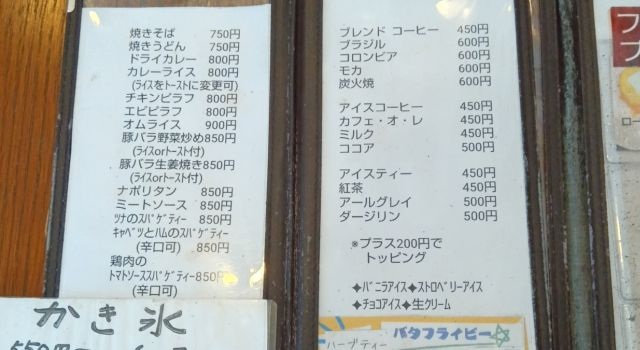 焼きそば 750円
焼きうどん 750円
ドライカレー 800円
カレーライス 800円
(ライスをトーストに変更可)
チキンピラフ 800円
エビピラフ 800円
オムライス 900円
豚バラ野菜炒め850円
(ライスorトースト付)
豚バラ生姜焼き850円
(ライスorトースト付)
ナポリタン 850円
ミートソース 850円
ツナのスパゲティー 850円
キャベツとハムのスパゲティー
(辛口可) 850円
鶏肉の
トマトソーススパゲティー850円
(辛口可)
かき氷
550円
ブレンド コーヒー 450円
ブラジル 600円
コロンビア 600円
モカ 600円
炭火焼 600円
アイスコーヒー 450円
カフェ・オ・レ 450円
ミルク 450円
ココア 500円
アイスティー 450円
紅茶 450円
アールグレイ 500円
ダージリン 500円
※プラス200円で
トッピング
◆バニラアイス◆ストロベリーアイス
◆チョコアイス◆生クリーム
バタフライピー
ハーブティー